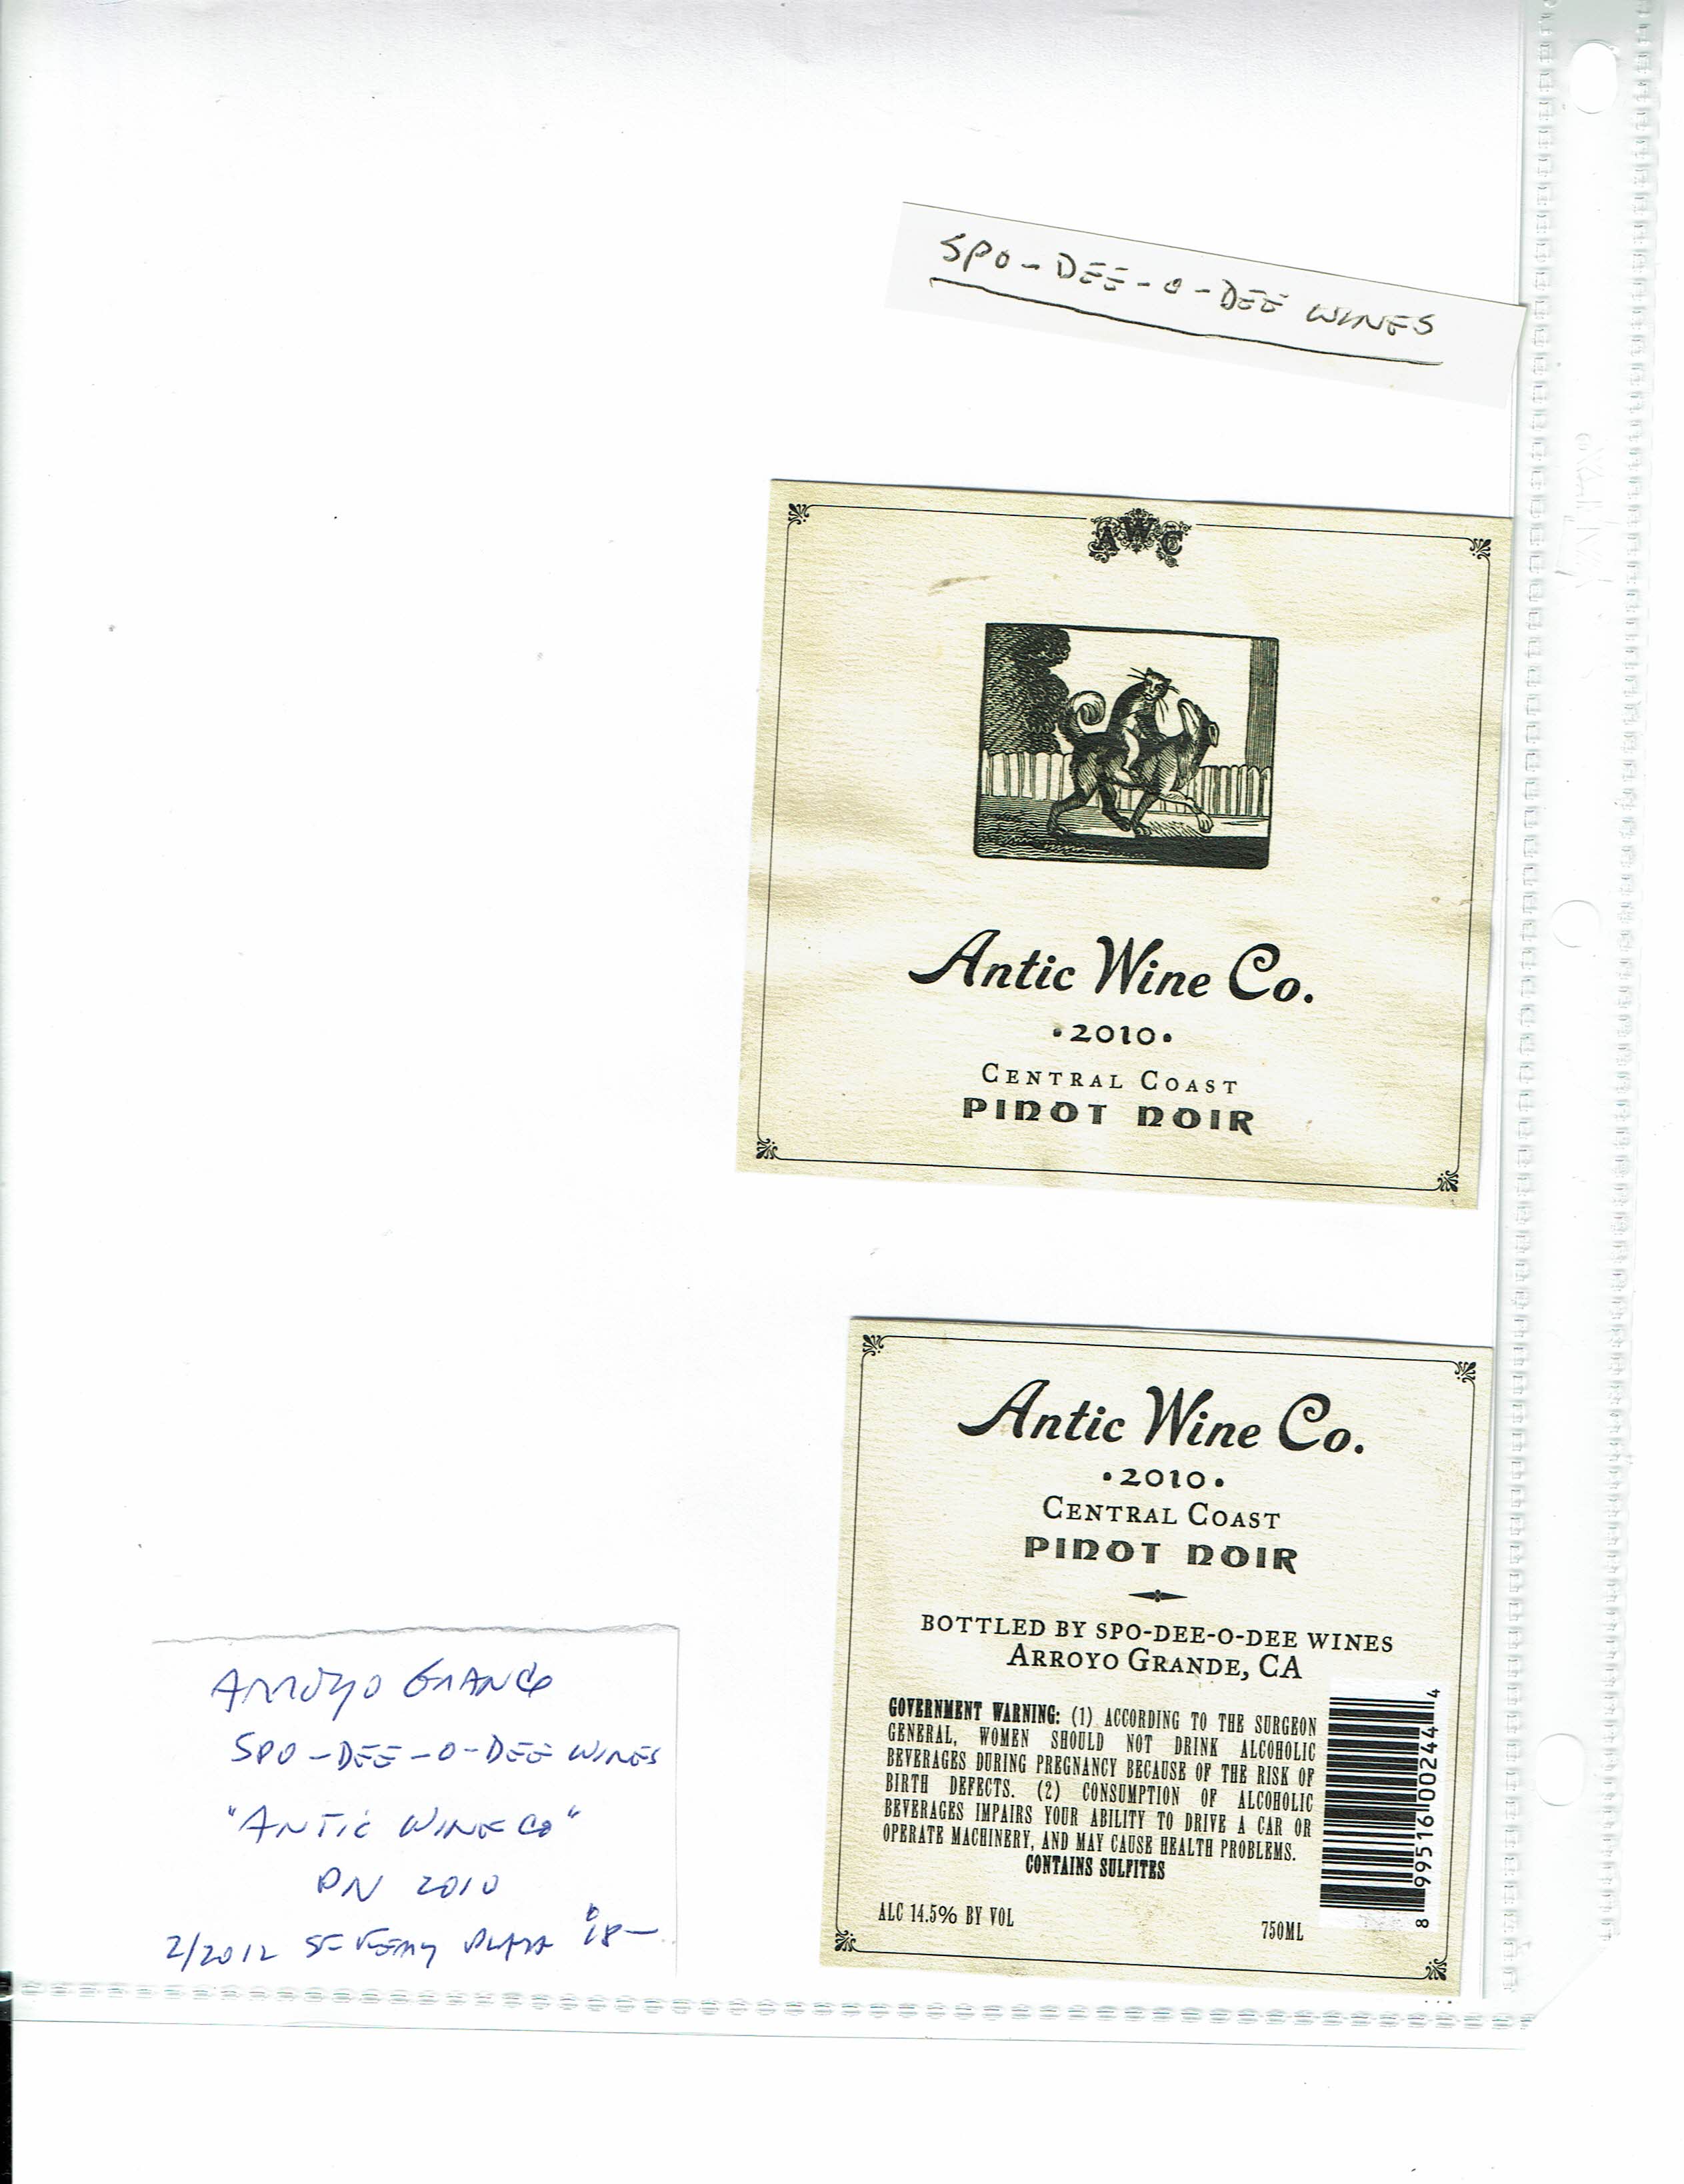 SPO-DEE-O-DEE WINES
AWC
Antic Wine Co.
•2010•
CENTRAL COAST
PINOT NOIR
Antic Wine Co.
•2010•
CENTRAL COAST
PINOT NOIR
BOTTLED BY SPO-DEE-O-DEE WINES
ARROYO GRANDE, CA
GOVERNMENT WARNING: (1) ACCORDING TO THE SURGEON
GENERAL, WOMEN SHOULD NOT DRINK ALCOHOLIC
BEVERAGES DURING PREGNANCY BECAUSE OF THE RISK OF
BIRTH DEFECTS. (2) CONSUMPTION OF ALCOHOLIC
BEVERAGES IMPAIRS YOUR ABILITY TO DRIVE A CAR OR
OPERATE MACHINERY, AND MAY CAUSE HEALTH PROBLEMS.
CONTAINS SULFITES
ALC 14.5% BY VOL
750ML
8 99516 00244 4
ARROYO GRANDE
SPO-DEE-O-DEE WINES
"ANTIC WINE CO"
PN 2010
2/2012 18—